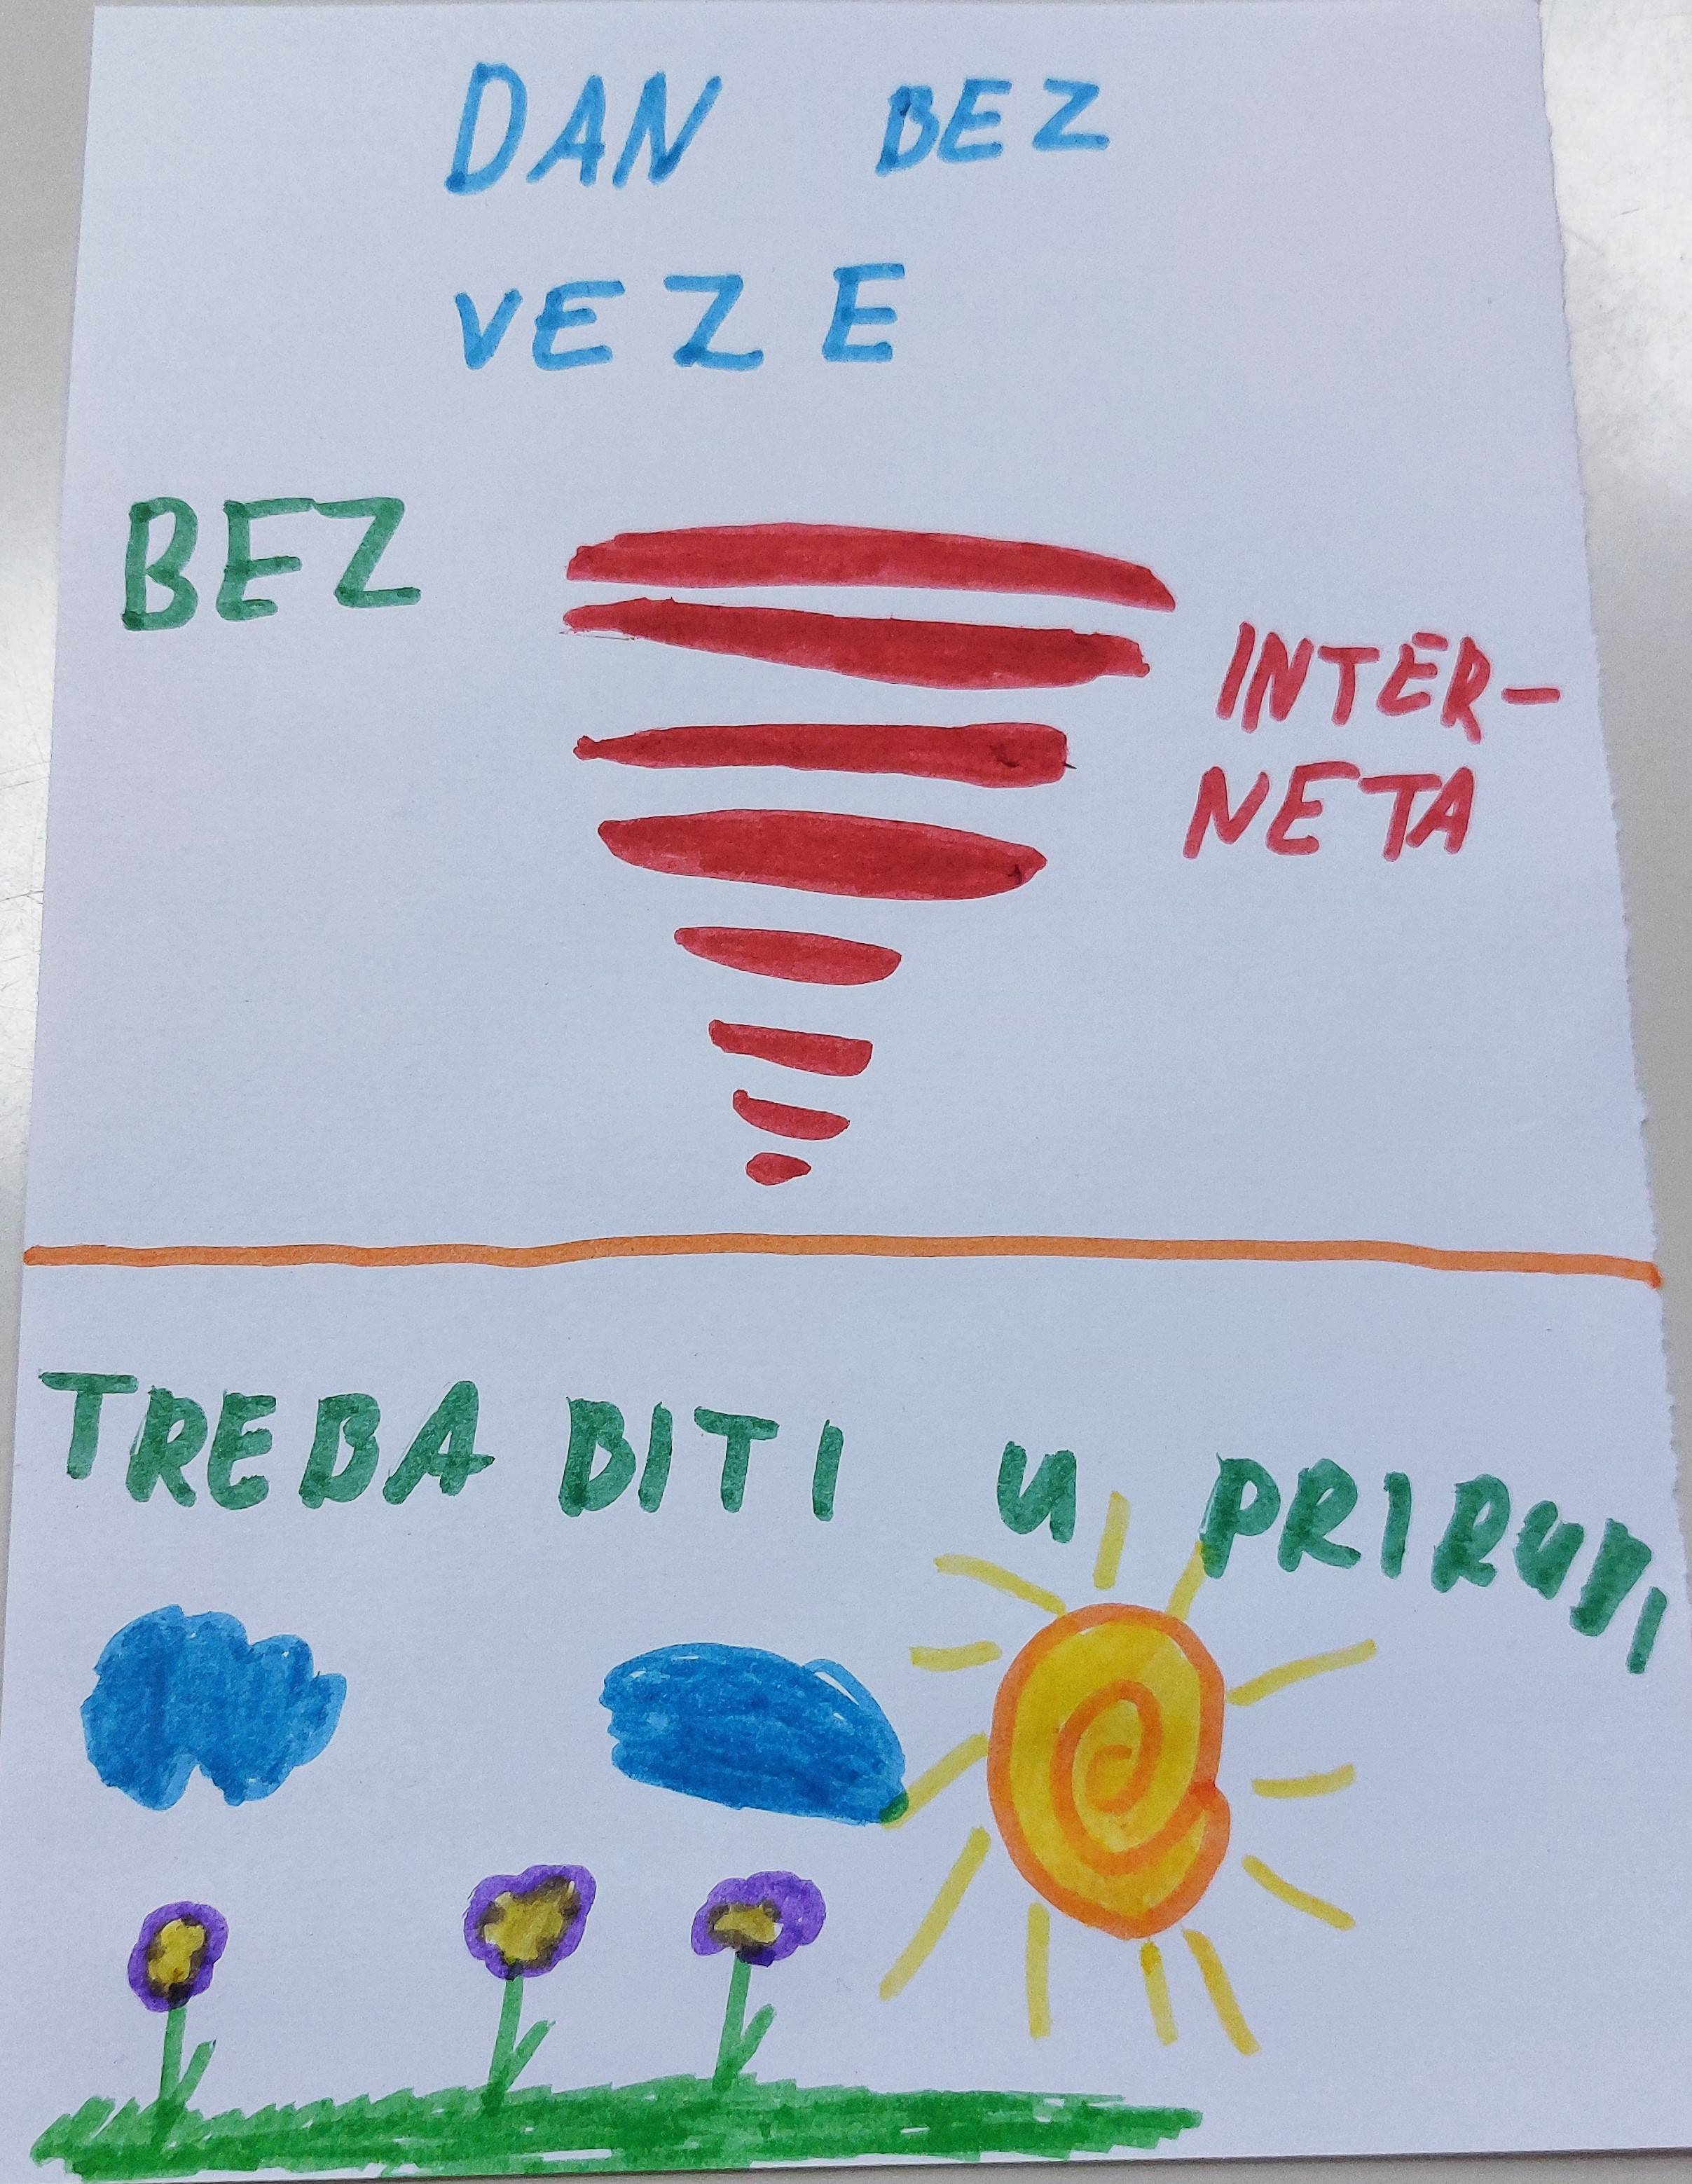 DAN BEZ
VEZE
BEZ
INTER-
NETA
TREBA BITI U PRIRUDI